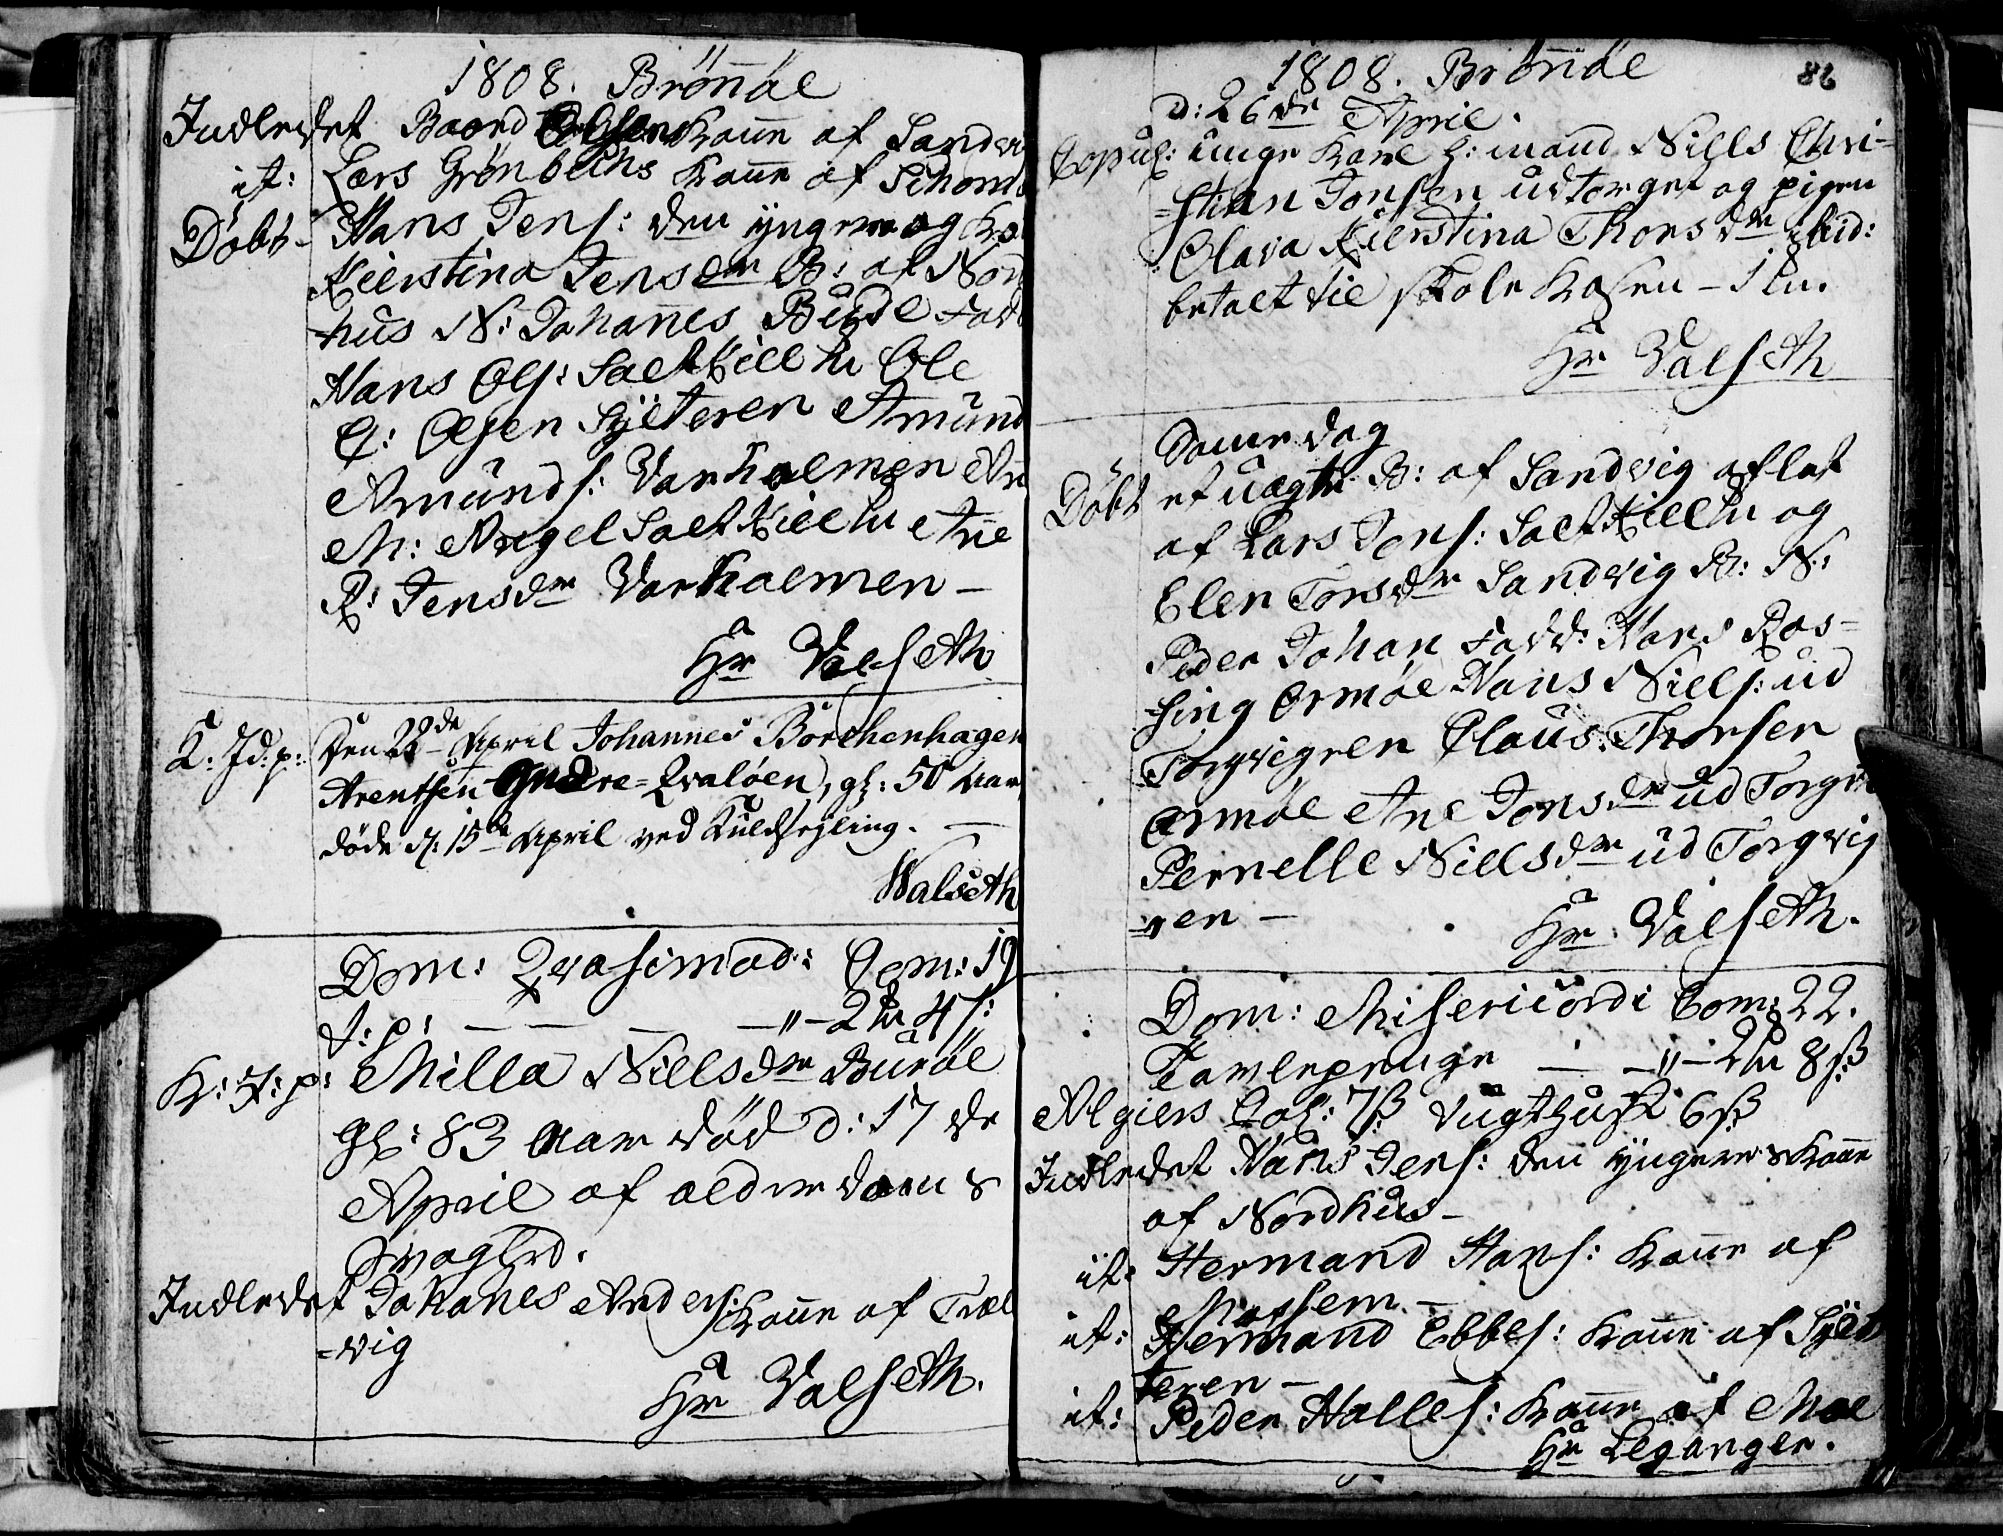 1808. Brönöe
Indledet Baard Olsens Kone af Sandvi
it: Lars Grönbechs Kone af Schom
Döbt Hans Jens: den yngere og Ko
Kierstina Jensdr B: af Nord
hus N: Johanes Budde Fad
Hans Ols: Saltkielen Ole
C: Olsen Sylteren Amund
Amunds: Varholmen An
M: Angel Saltkielen Ane
K: Jensdr Varholmen –
Hr Valseth
K: Jd: p: Den 22de April Johannes Borchenhagen
Arentsen Indre=Qvalöen, gl: 50 Aar
döde d. 15de April ved Kuldseyling. –
Walseth
Dom: Qvasimod: Com: 19
T: p: – – – – „ – 2 4 s:
K: J: p: Milla Nielsdr Buröe
gl: 83 Aar död d: 17 de
April af alderdoms
Svaghed.
Indledet Johanes Anders: Kone af Træl
=vig
Hr Valseth.
1808. Brönöe
D: 26de April.
Copul: unge Karl h: mand Niels Chri-
=stian Jonsen udTorget og pigen
Olava Kierstina Thorsdr ibid:
betalt til skole Kasen – 1
Hr Valseth
Samedag
Döbt et uægte B: af Sandvig aflet
af Lars Jons: Saltkielen og
Elen Torsdr Sandvig B: N:
Peder Johan Fadd: Hans Ros=
=sing Ormöe Hans Niels: ud
Torgvigven Claus Thorsen
Ormöe Ane Jonsdr ud Torg
Pernelle Nielsdr ud Torgvig
=ven –
Hr Valseth.
Dom: Misericordi Com: 22.
Tavlepenge – – „ – 2 8 s
Algiers Col: 7 s Tugthuset 6 s
Indledet Hans Jens: den yngeres Kone
af Nordhus –
it: Hermand Hans: Kone af
Mossem. –
it: Hermand Ebbes: Kone af Sylt
teren –
it: Peder Halles: Kone af Moe
Hr Leganger.